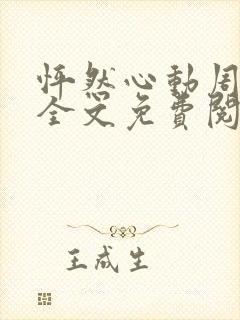 怦然心动周
全文免费阅
王成生